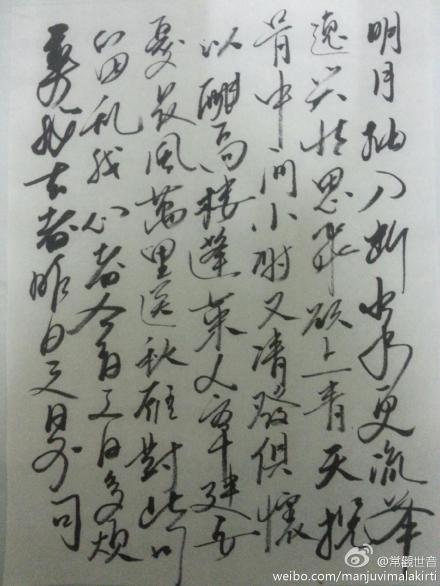 棄我去者昨日之日不可
留乱我心者今日之日多烦
憂长風萬里送秋雁對此可
以酣高楼蓬萊文章建安
骨中间小谢又清發俱懷
逸兴壮思飞欲上青天揽
明月抽刀断水水更流举
@常觀世音
weibo.com/manjuvimalakirti